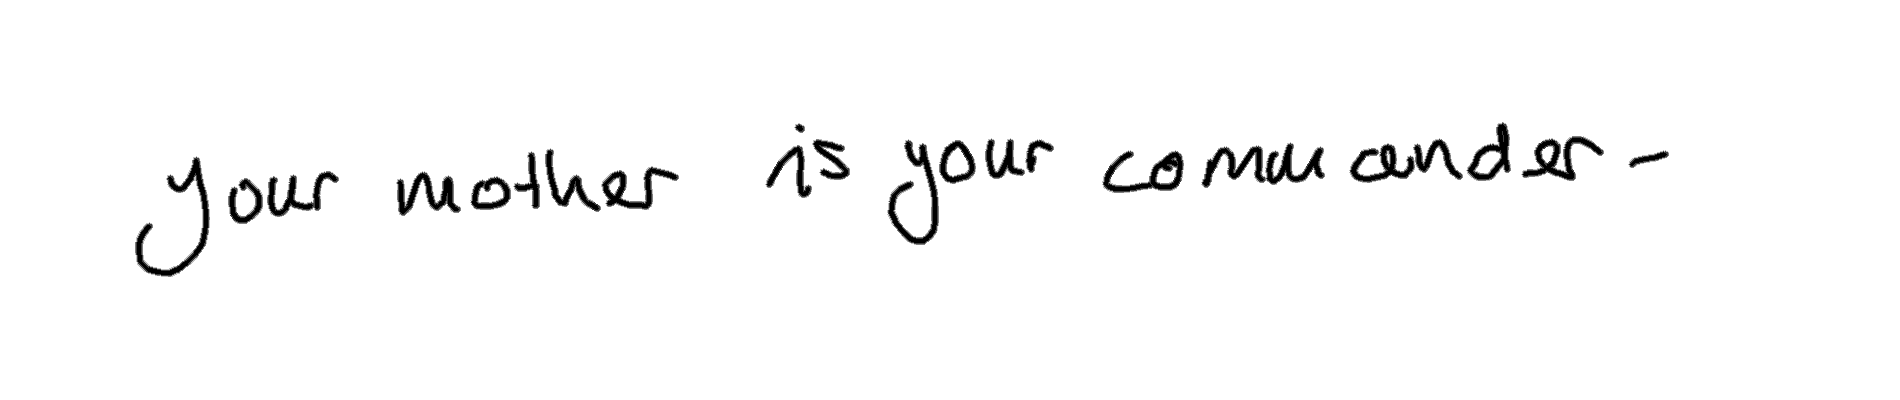 your mother is your commander-